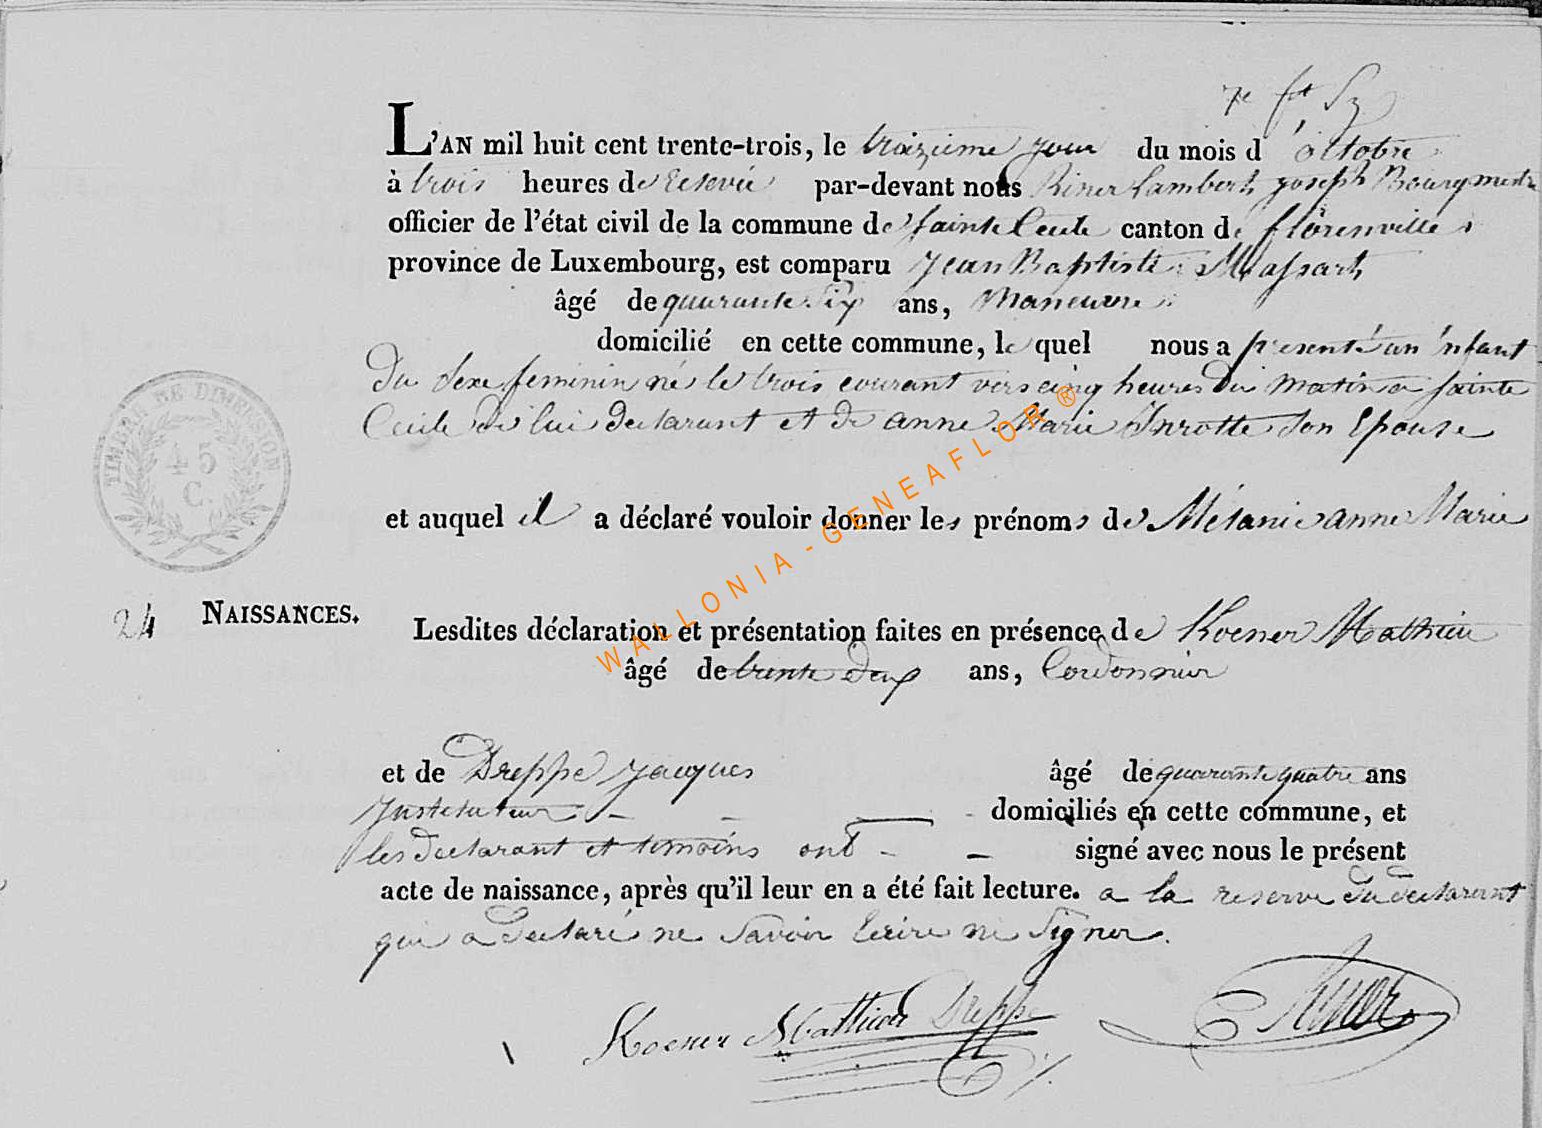 7e ft Sz
L'AN mil huit cent trente-trois, le troizieme jour du mois d'octobre
à trois heures de relevée par-devant nous Riner Lambert joseph Bourgmestre
officier de l'état civil de la commune de Sainte Cecile canton de florenville
province de Luxembourg, est comparu Jean Baptiste Massart
âgé de quarante Six ans, Maneuvre
domicilié en cette commune, le quel nous a presenté un Enfant
du Sexe feminin né le trois courant vers cinq heures du matin a Sainte
Cecile de lui declarant et de anne Marie Inrotte Son Epouse
et auquel il a déclaré vouloir donner les prénoms de Mélanie anne Marie
24 NAISSANCES.
Lesdites déclaration et présentation faites en présence de Koener Mathieu
âgé de trente deux ans, Cordonnier
et de Dreppe jacques âgé de quarante quatre ans
Instituteur domiciliés en cette commune, et
les declarant et temoins ont signé avec nous le présent
acte de naissance, après qu'il leur en a été fait lecture. a la reserve du declarant
qui a declaré ne Savoir Ecrire ni Signer.
Koener Mathieu Dreppe Riner
TIMBRE DE DIMENSION
45
C.
WALLONIA-GENEAFLOR ®